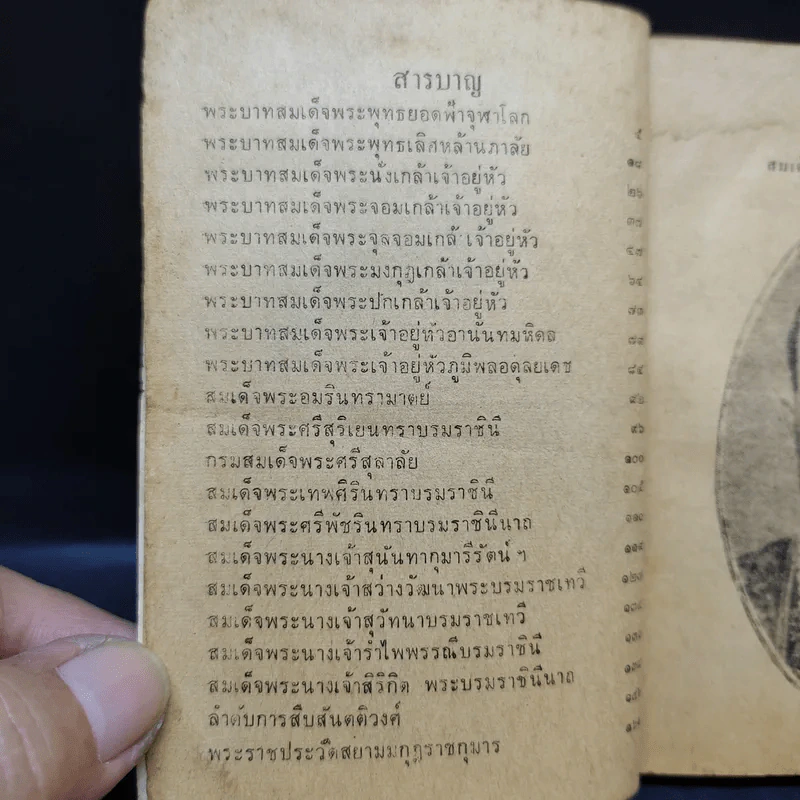 สารบาญ
พระบาทสมเด็จพระพุทธยอดฟ้าจุฬาโลก
พระบาทสมเด็จพระพุทธเลิศหล้านภาลัย ๕
พระบาทสมเด็จพระนั่งเกล้าเจ้าอยู่หัว ๑๘
พระบาทสมเด็จพระจอมเกล้าเจ้าอยู่หัว ๒๖
พระบาทสมเด็จพระจุลจอมเกล้าเจ้าอยู่หัว ๓๗
พระบาทสมเด็จพระมงกุฎเกล้าเจ้าอยู่หัว
พระบาทสมเด็จพระปกเกล้าเจ้าอยู่หัว ๖๔
พระบาทสมเด็จพระเจ้าอยู่หัวอานันทมหิดล
พระบาทสมเด็จพระเจ้าอยู่หัวภูมิพลอดุลยเดช
สมเด็จพระอมรินทรามาตย์
สมเด็จพระศรีสุริเยนทราบรมราชินี
กรมสมเด็จพระศรีสุลาลัย
สมเด็จพระเทพศิรินทราบรมราชินี
สมเด็จพระศรีพัชรินทราบรมราชินีนาถ
สมเด็จพระนางเจ้าสุนันทากุมารีรัตน์ ฯ
สมเด็จพระนางเจ้าสว่างวัฒนาพระบรมราชเทวี
สมเด็จพระนางเจ้าสุวัทนาบรมราชเทวี
สมเด็จพระนางเจ้ารำไพพรรณีบรมราชินี
สมเด็จพระนางเจ้าสิริกิต พระบรมราชินีนาถ
ลำดับการสืบสันตติวงศ์
พระราชประวัติสยามมกุฎราชกุมาร